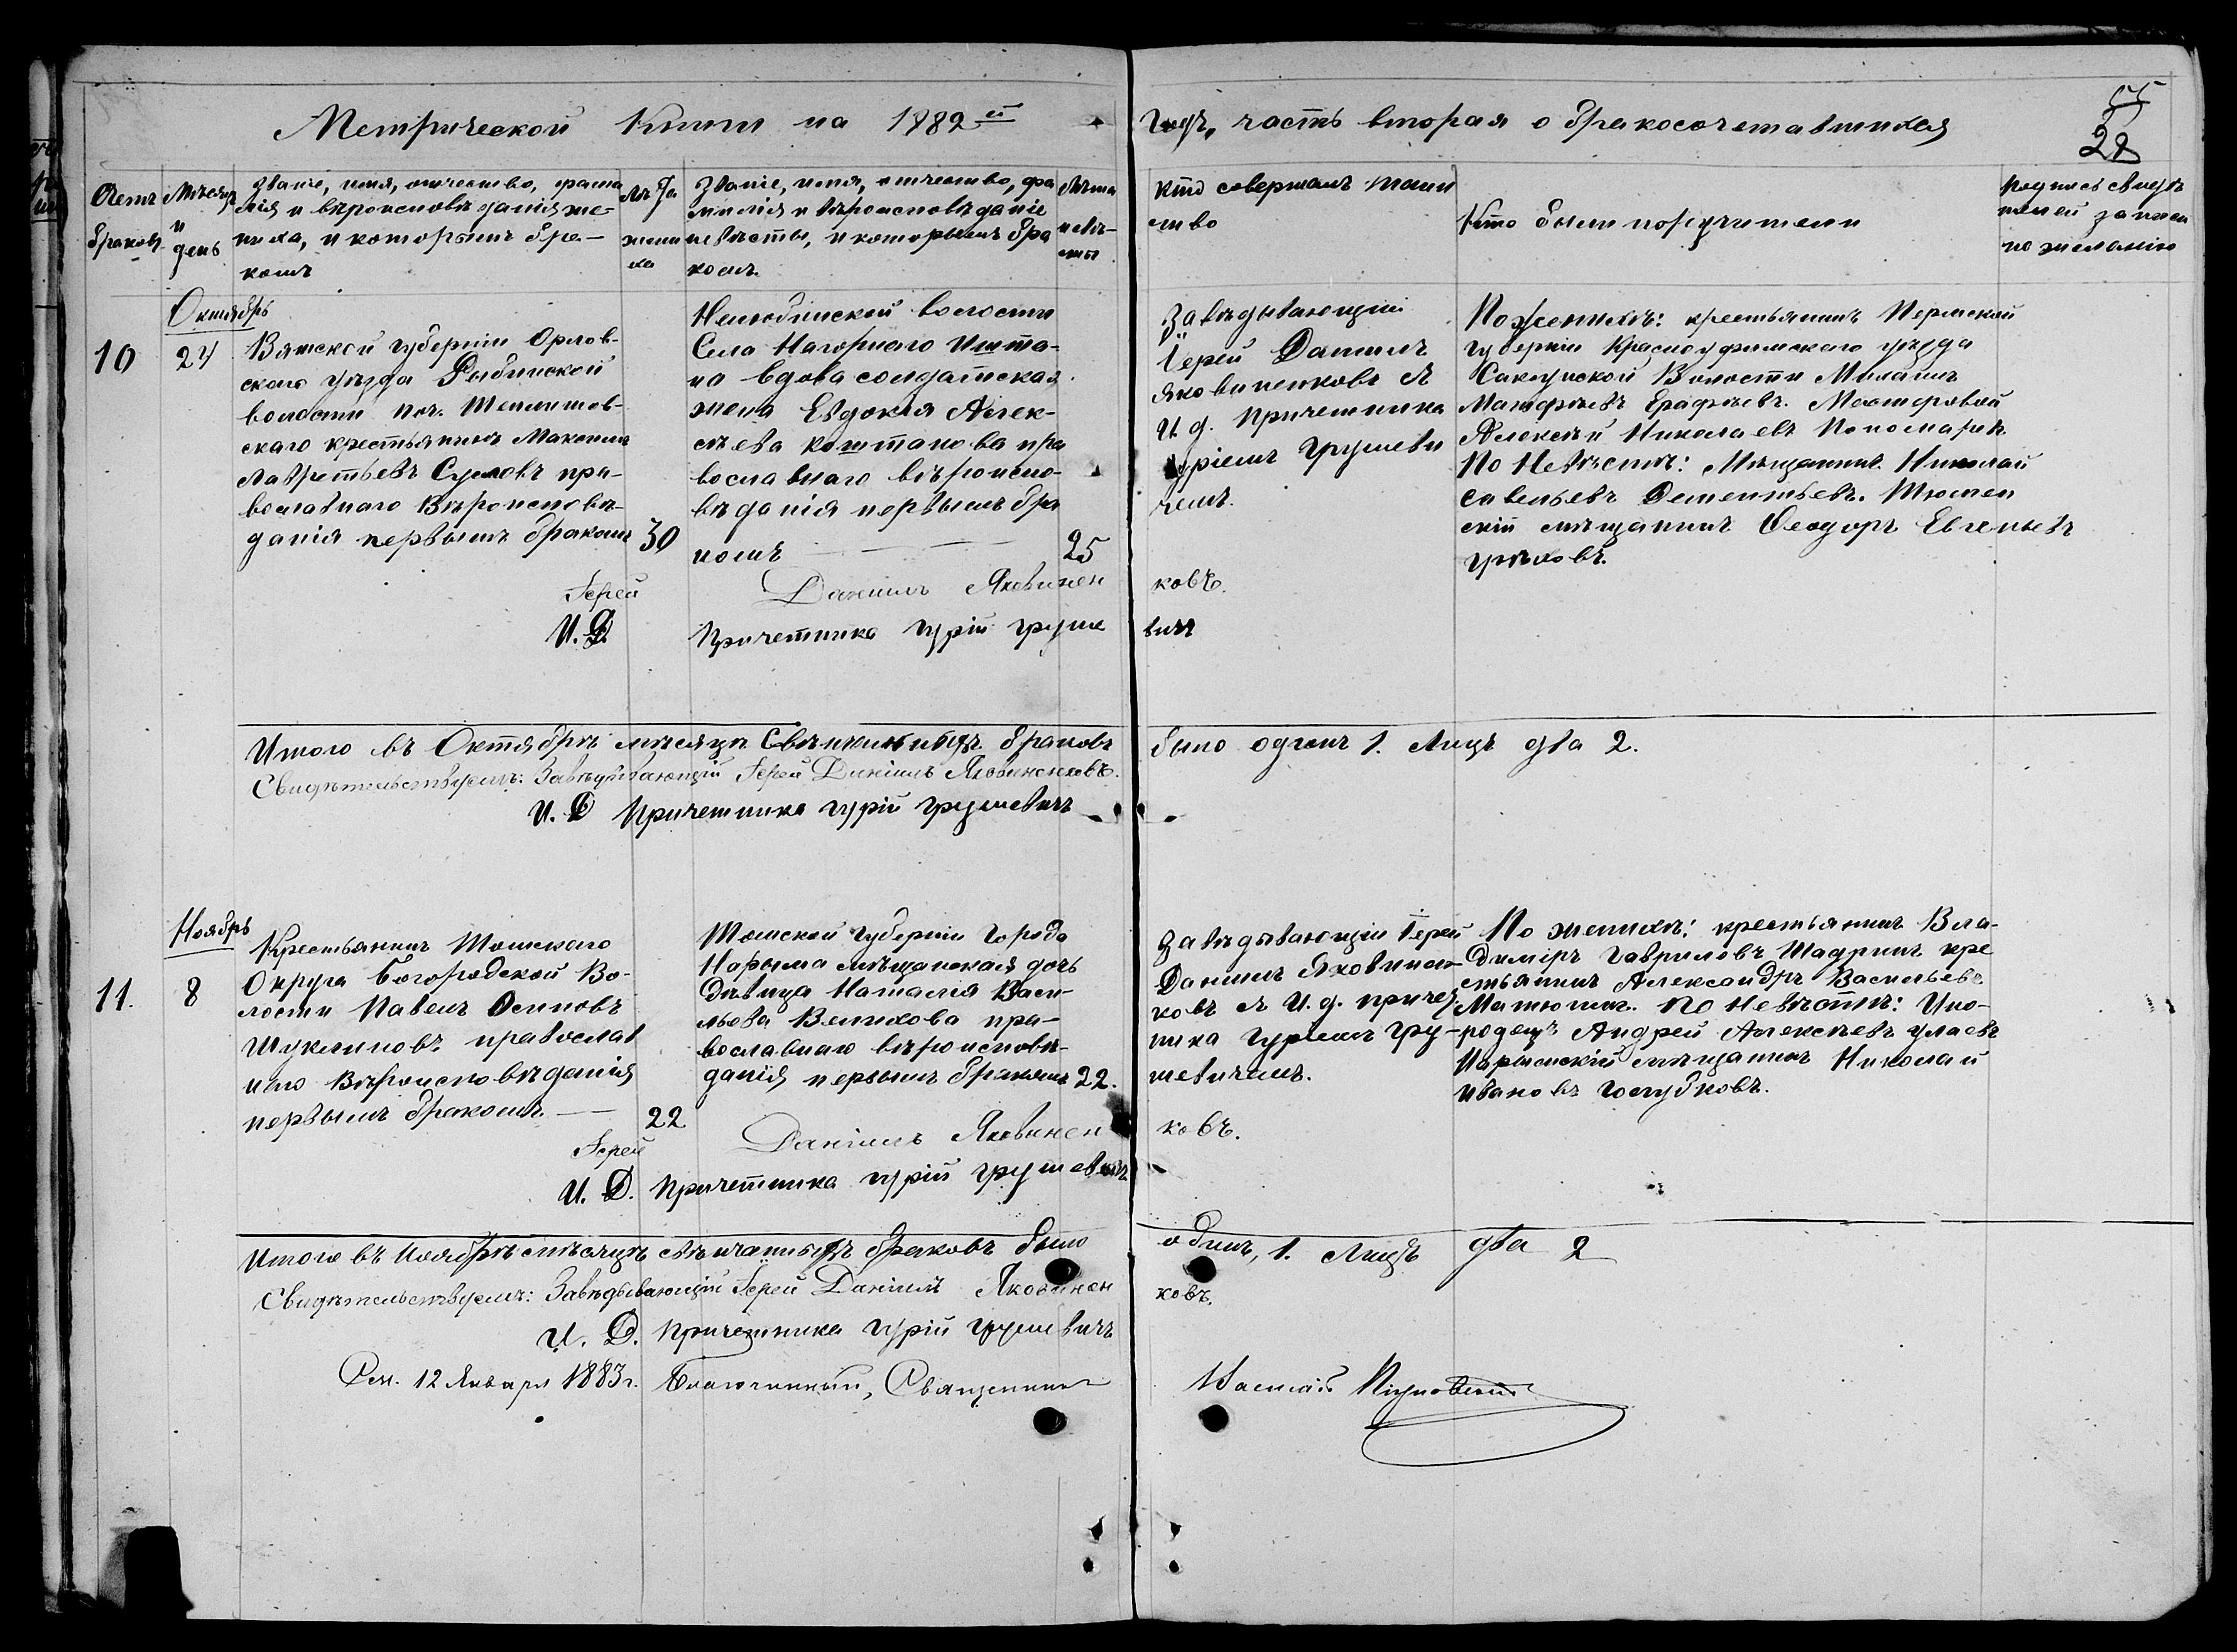 Метрической Книги на 1882 й годъ, часть вторая о бракосочетавшихся
55
28
Счетъ браковъ.
Мѣсяцъ и день
Званіе, имя, отчество, фами
лія и вѣроисповѣданіе же-
ниха, и которымъ бра-
комъ
Лѣта
жени
ха
Званіе, имя, отчество, фа
милія и вѣроисповѣданіе
невѣсты, и которымъ бра
комъ.
Лѣта
невѣ-
сты
Кто совершалъ таин
ство
Кто были поручители
Подпись свидѣ
телей записи
по желанію
Октябрь
10
24
Вятской губерніи Орлов-
скаго уѣзда
волости поч.
скаго крестьянинъ Максимъ
Лаврентьевъ Сусловъ пра-
вославнаго Вѣроисповѣ-
данія первымъ бракомъ
30
Нелюбинской волости
Села Нагорнаго Ишта-
на вдова солдатская
жена Евдокия Алек-
сѣева Коштакова пра
вославнаго вѣроиспо-
вѣданія первымъ бра
комъ
25
Завѣдывающій
Іерей Даниилъ
Яковиненковъ съ
И. д. Причетника
Гуріемъ Грушеви
чемъ.
По женихѣ: крестьянинъ Пермской
губерніи Красноуфимскаго уѣзда
Волости
Матфѣевъ Ерафѣевъ. Мастеровой
Алексѣй Николаевъ Пономаревъ
По Невѣстѣ: Мѣщанинъ Николай
Савельевъ Дементьевъ. Тюмен
скій мѣщанинъ Ѳеодоръ Евгеньевъ
Грѣховъ.
Іерей Даніилъ Яковинен ковъ.
И. Д. Причетника Гурій Груше вичъ
Итого въ Октябрѣ мѣсяцѣ браковъ было одинъ 1. Лицъ два 2.
Свидѣтельствуемъ: Завѣдывающій Іерей Даніилъ Яковиненковъ.
И. Д Причетника Гурій Грушевичъ
Ноябрь
11.
8
Крестьянинъ Томскаго
Округа Богородской Во-
лости Павелъ Осиповъ
Шуклиновъ православ
наго Вѣроисповѣданія
первымъ бракомъ.
22
Томской губерніи Города
Нарыма мѣщанская дочь
Дѣвица Наталія Васи-
льева Вялихова пра-
вославнаго вѣроисповѣ-
данія первымъ бракомъ
22.
Завѣдывающій Іерей
Даниилъ Яковинен-
ковъ съ И. д. причет
ника Гуріемъ Гру-
шевичемъ.
По женихѣ: крестьянинъ Вла-
димiръ Гавриловъ Шадринъ кре
стьянинъ Александръ Васильевъ
Матюшинъ. По Невѣстѣ: Ино-
родецъ Андрей Алексѣевъ Улаевъ
Нарымскій мѣщанинъ Николай
Ивановъ Голубковъ.
Іерей Даніилъ Яковинен ковъ.
И. Д. Причетника Гурій Грушевичъ
Итого въ Ноябрѣ мѣсяцѣ вѣнчанныхъ браковъ было одинъ, 1. Лицъ два 2
Свидѣтельствуемъ: Завѣдывающій Іерей Даніилъ Яковинен ковъ.
И. Д. Причетника Гурій Грушевичъ
Рев. 12 Января 1883 г. Благочинный, Священникъ